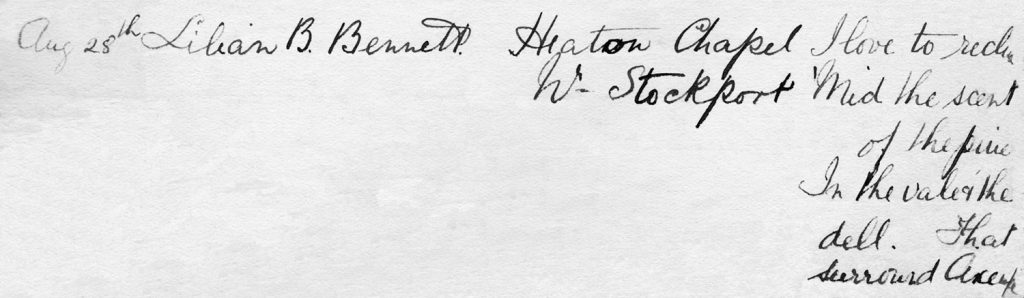 Aug 28th Lilian B. Bennett. Heaton Chapel I love to
Nr Stockport 'Mid the scent
of the pine
In the vale & the
dell. That
surround